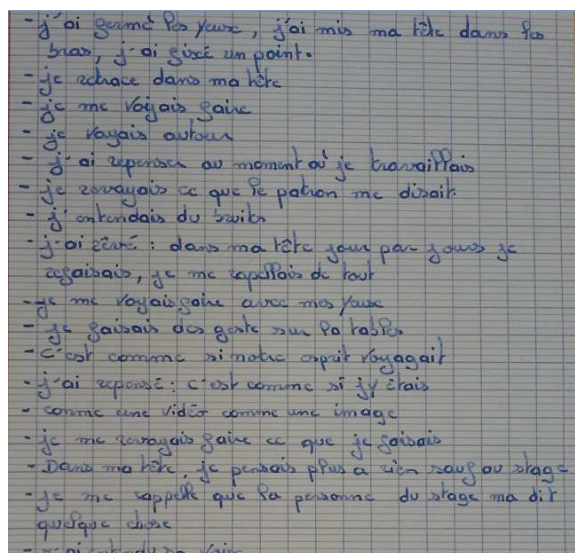 - j'ai fermé les yeux, j'ai mis ma tête dans les
bras, j'ai fixé un point.
- je retrace dans ma tête
- je me voyais faire
- je voyais autour
- j'ai repenser au moment où je travaillais
- je revoyais ce que le patron me disait.
- j'entendais du bruits
- j'ai rêvé : dans ma tête jour par jours je
refaisais, je me rapellais de tout
- je me voyais faire avec mes yeux
- je faisais des geste sur la tables
- c'est comme si notre esprit voyagait
- j'ai repensé : c'est comme si j'y étais
- comme une vidéo comme une image
- je me revoyais faire ce que je faisais
- Dans ma tête, je pensais plus a rien sauf au stage
- je me rappelle que la personne du stage ma dit
quelque chose
- j'ai entendu sa voix